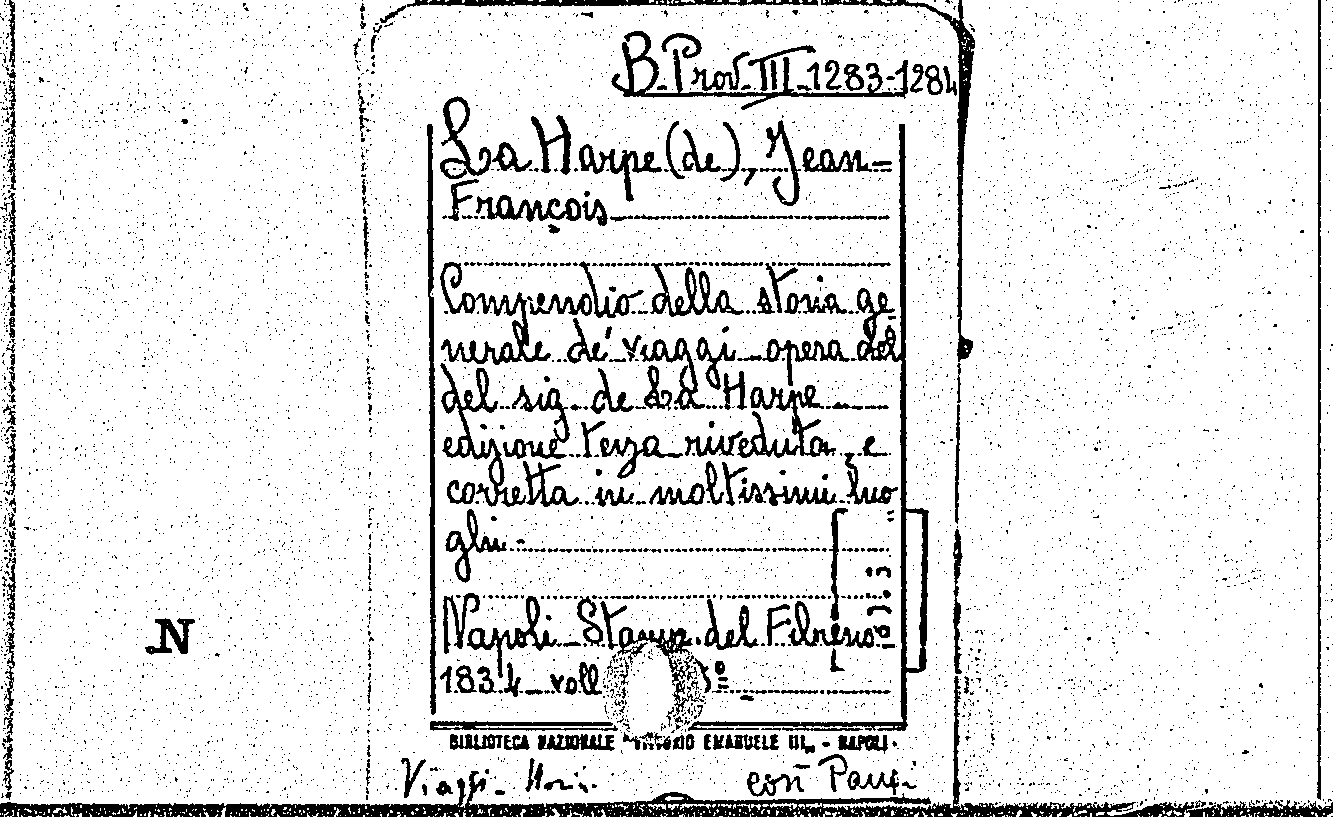 B. Prov. III 1283-1284
La Harpe (de), Jean-
François
Compendio della storia ge=
nerale de' viaggi opera del
del sig. de La Harpe
edizione terza riveduta, e
corretta in moltissimi luo=
ghi.
Napoli Stamp. del Filreno
1834 voll
BIBLIOTECA NAZIONALE "VITTORIO EMANUELE III" - NAPOLI
Viaggi -
con
N